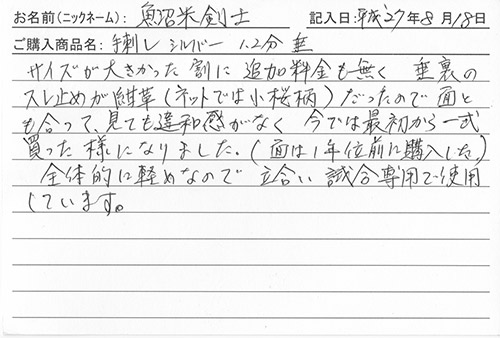 お名前(ニックネーム): 魚沼米剣士 記入日:平成27年8月18日
ご購入商品名: 手刺し シルバー 1.2分 垂
サイズが大きかった割に追加料金も無く 垂裏の
スレ止めが紺革(ネットでは小桜柄)だったので面と
も合って、見ても違和感がなく 今では最初から一式
買った様になりました。(面は1年位前に購入した)
全体的に軽めなので 立合い 試合専用で使用
しています。